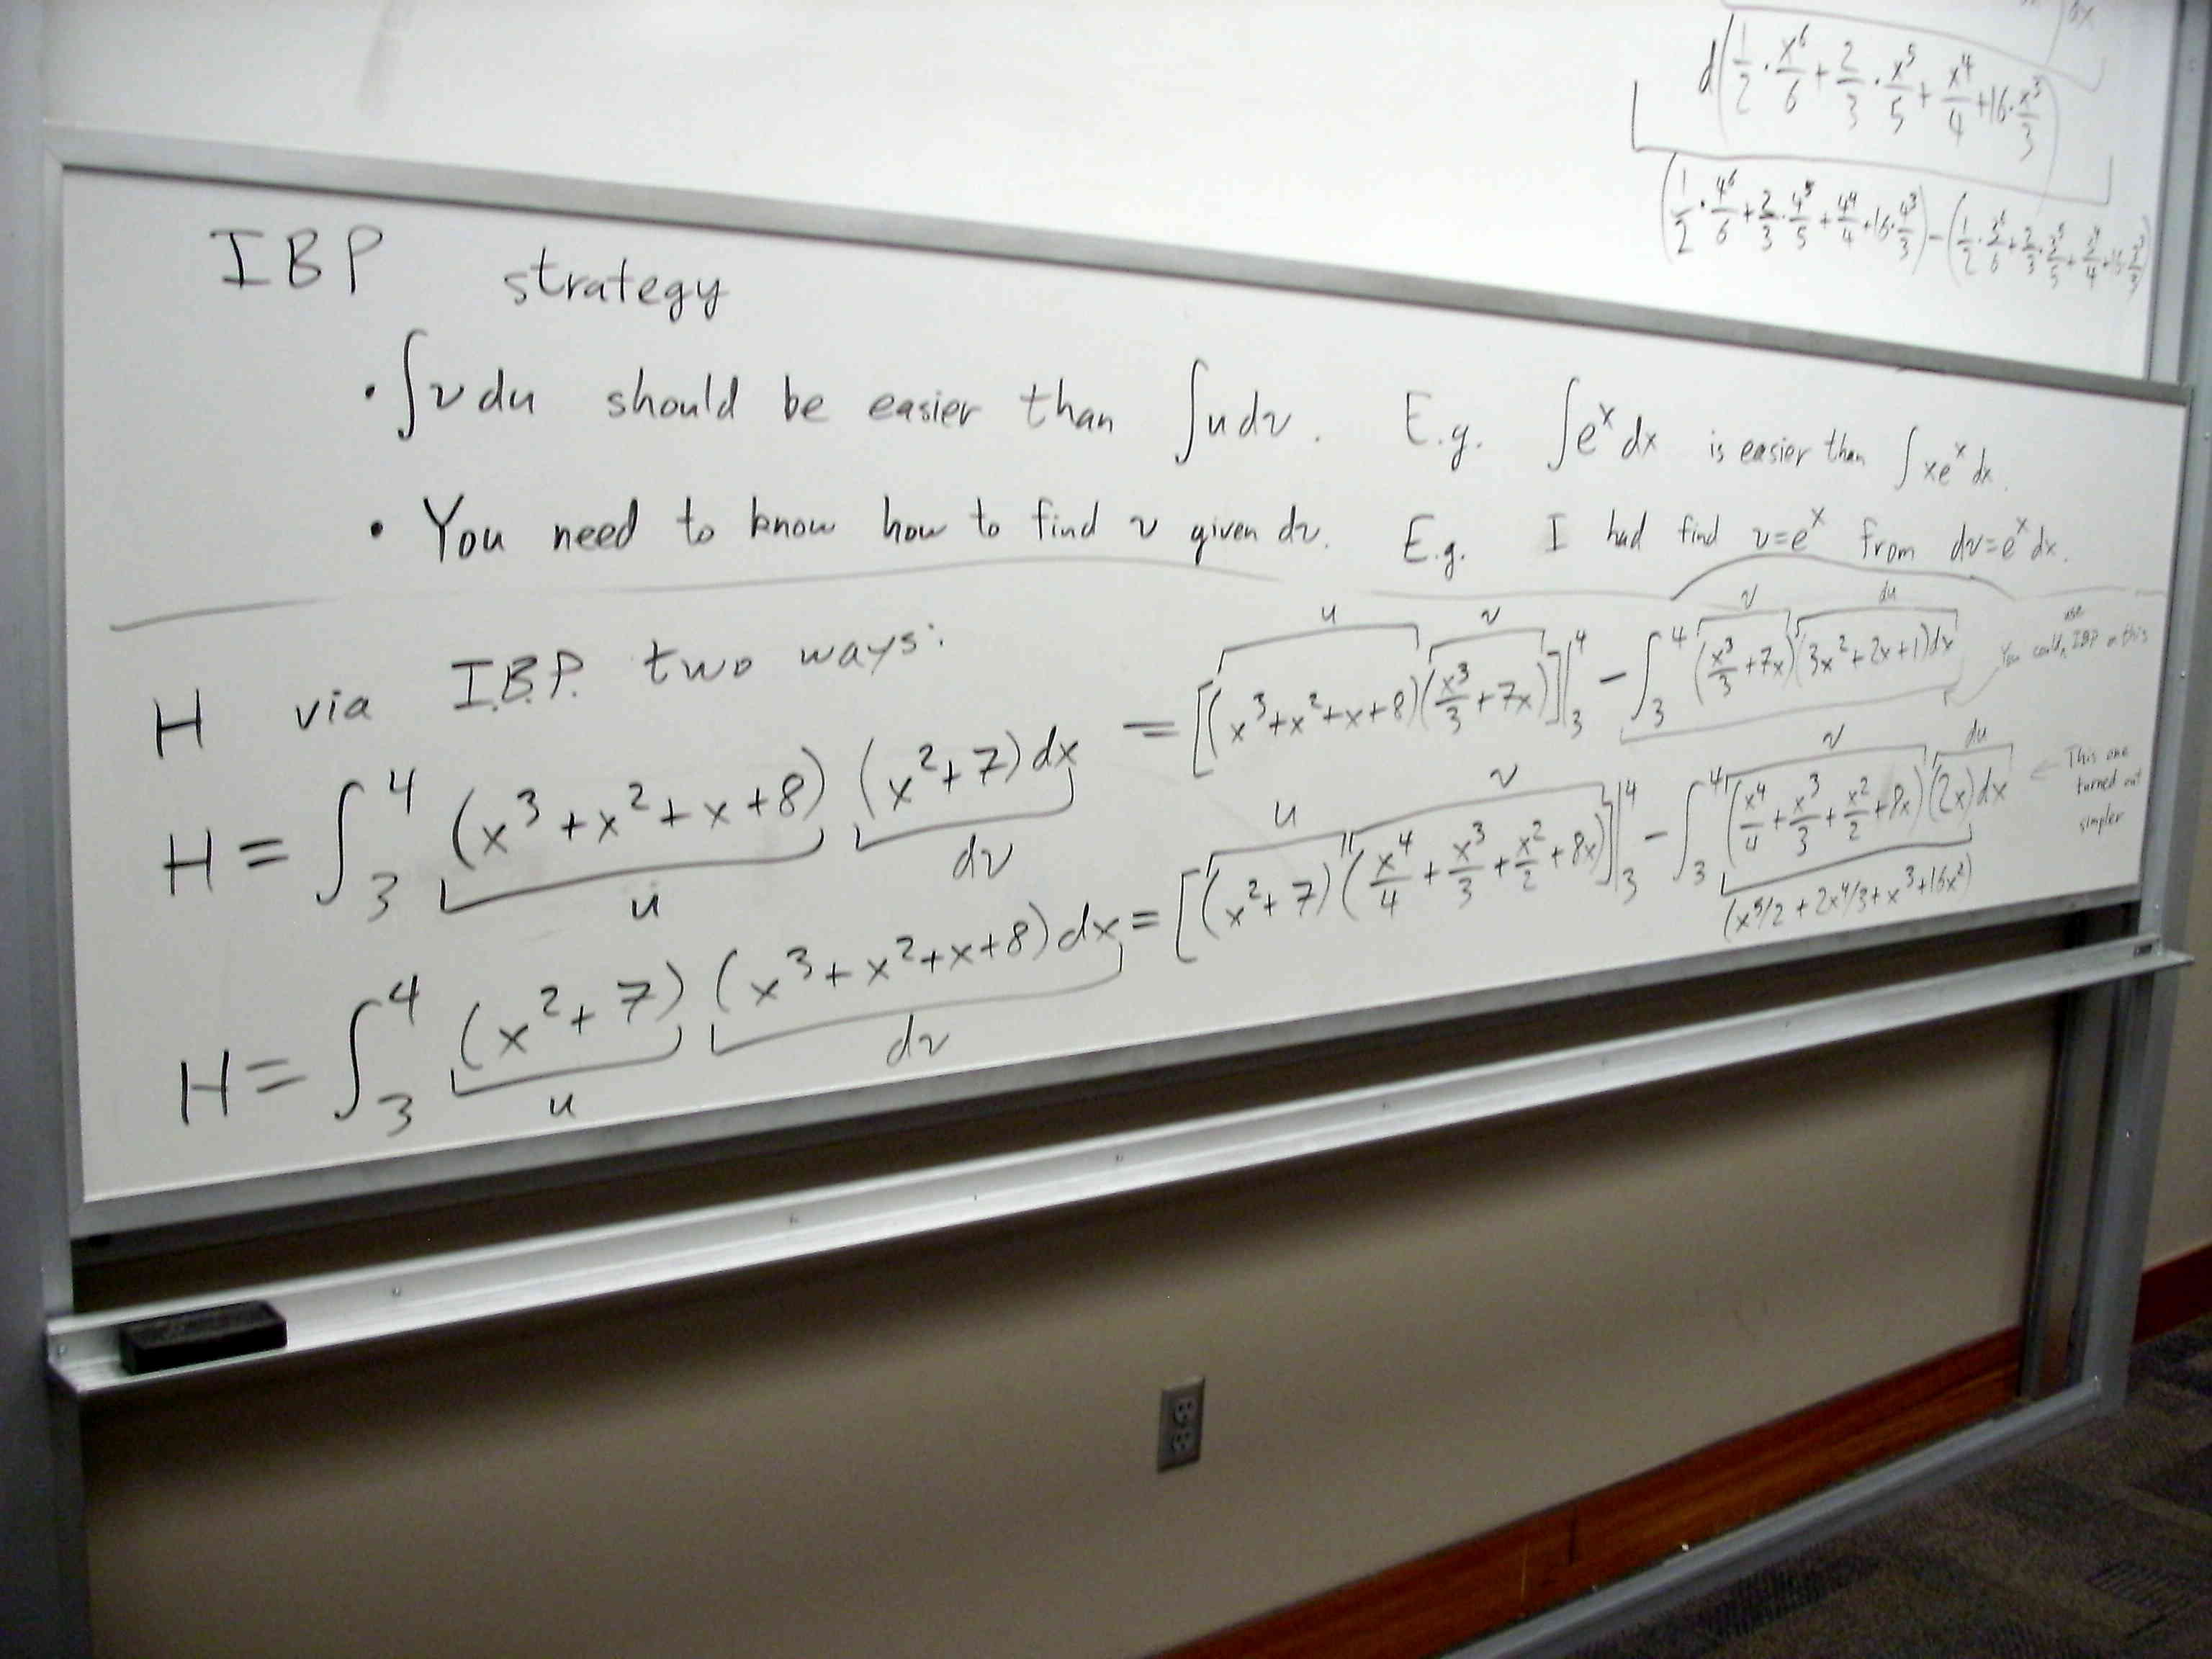 dx
d(1/2 · x⁶/6 + 2/3 · x⁵/5 + x⁴/4 + 16 · x³/3)
(1/2 · 4⁶/6 + 2/3 · 4⁵/5 + 4⁴/4 + 16 · 4³/3) − (1/2 · 3⁶/6 + 2/3 · 3⁵/5 + 3⁴/4 + 16 · 3³/3)
IBP strategy
• ∫v du should be easier than ∫u dv. E.g. ∫eˣ dx is easier than ∫xeˣ dx.
• You need to know how to find v given dv. E.g. I had find v=eˣ from dv=eˣ dx.
H via I.B.P. two ways:
u v v du
H = ∫₃⁴ (x³+x²+x+8) (x²+7) dx = [(x³+x²+x+8)(x³/3 + 7x)]|₃⁴ − ∫₃⁴ (x³/3 + 7x)(3x²+2x+1)dx
u dv
You could use IBP on this
u v v du
H = ∫₃⁴ (x²+7) (x³+x²+x+8) dx = [(x²+7)(x⁴/4 + x³/3 + x²/2 + 8x)]|₃⁴ − ∫₃⁴ (x⁴/4 + x³/3 + x²/2 + 8x)(2x)dx
u dv
(x⁵/2 + 2x⁴/3 + x³ + 16x²)
← This one
turned out
simpler